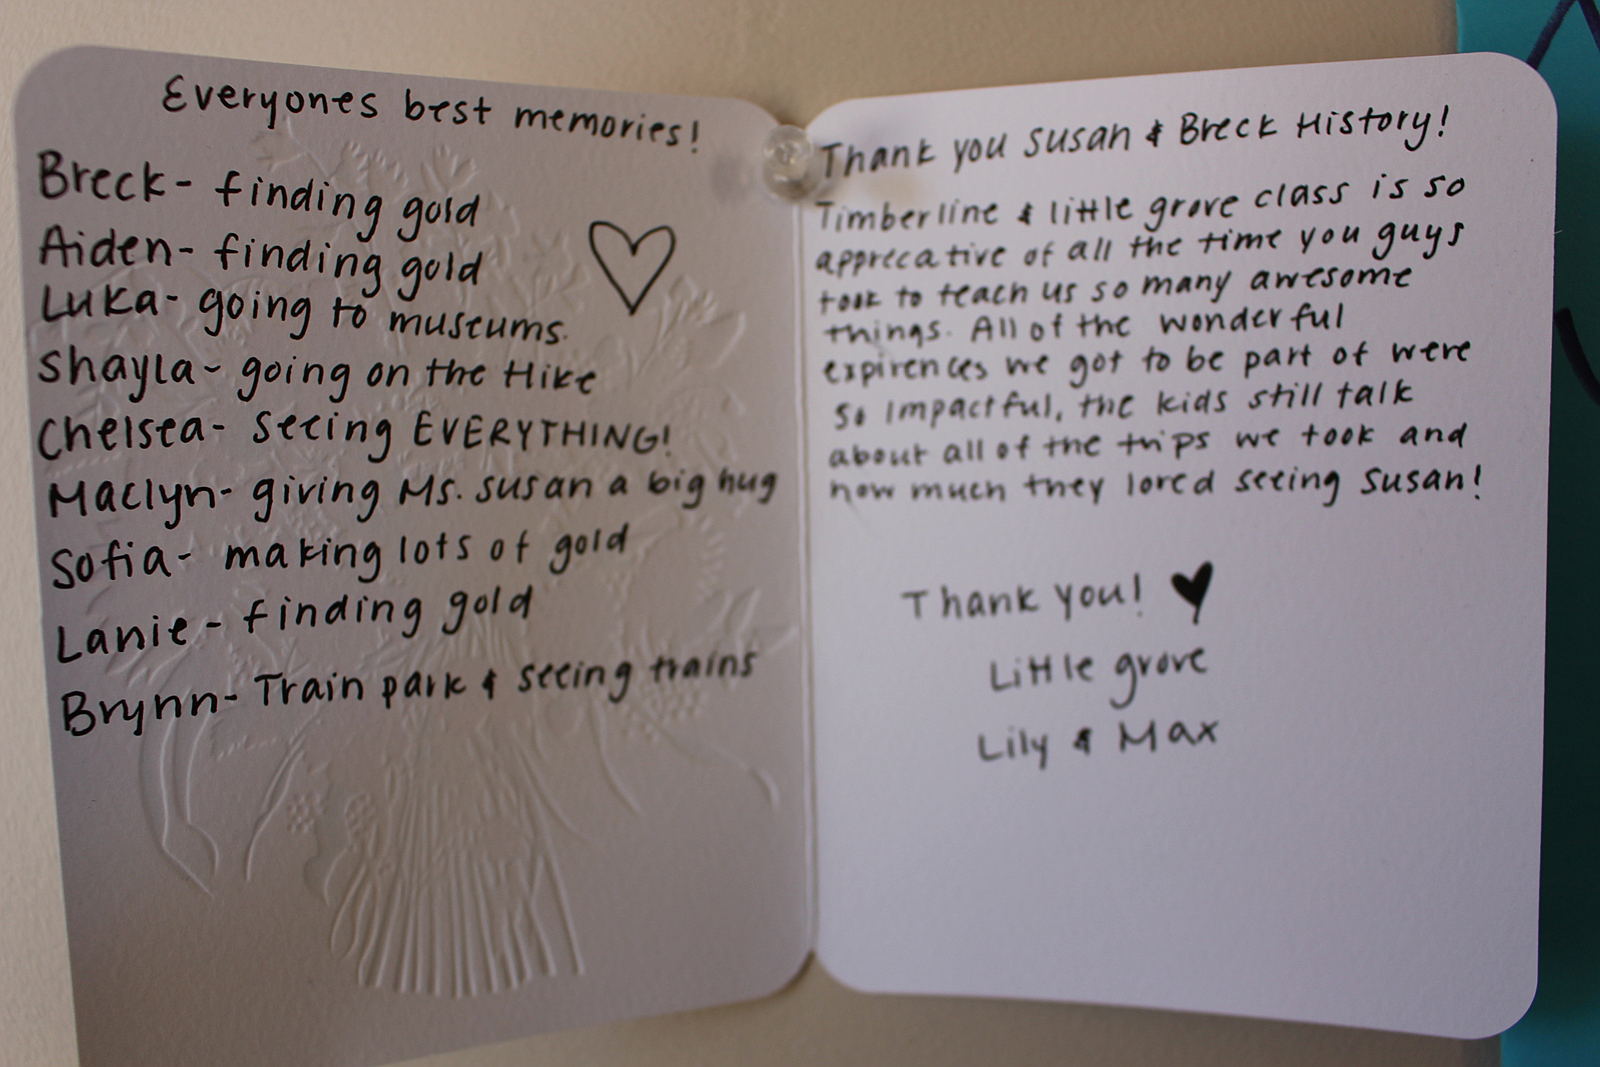 Everyones best memories!
Breck- finding gold
Aiden- finding gold
Luka- going to museums.
Shayla- going on the Hike
Chelsea- seeing EVERYTHING!
Maclyn- giving Ms. Susan a big hug
Sofia- making lots of gold
Lanie- finding gold
Brynn- Train park & seeing trains
Thank you Susan & Breck History!
Timberline & little grove class is so
apprecative of all the time you guys
took to teach us so many awesome
things. All of the wonderful
expirences we got to be part of were
so impactful, the kids still talk
about all of the trips we took and
how much they loved seeing Susan!
Thank you!
Little grove
Lily & Max